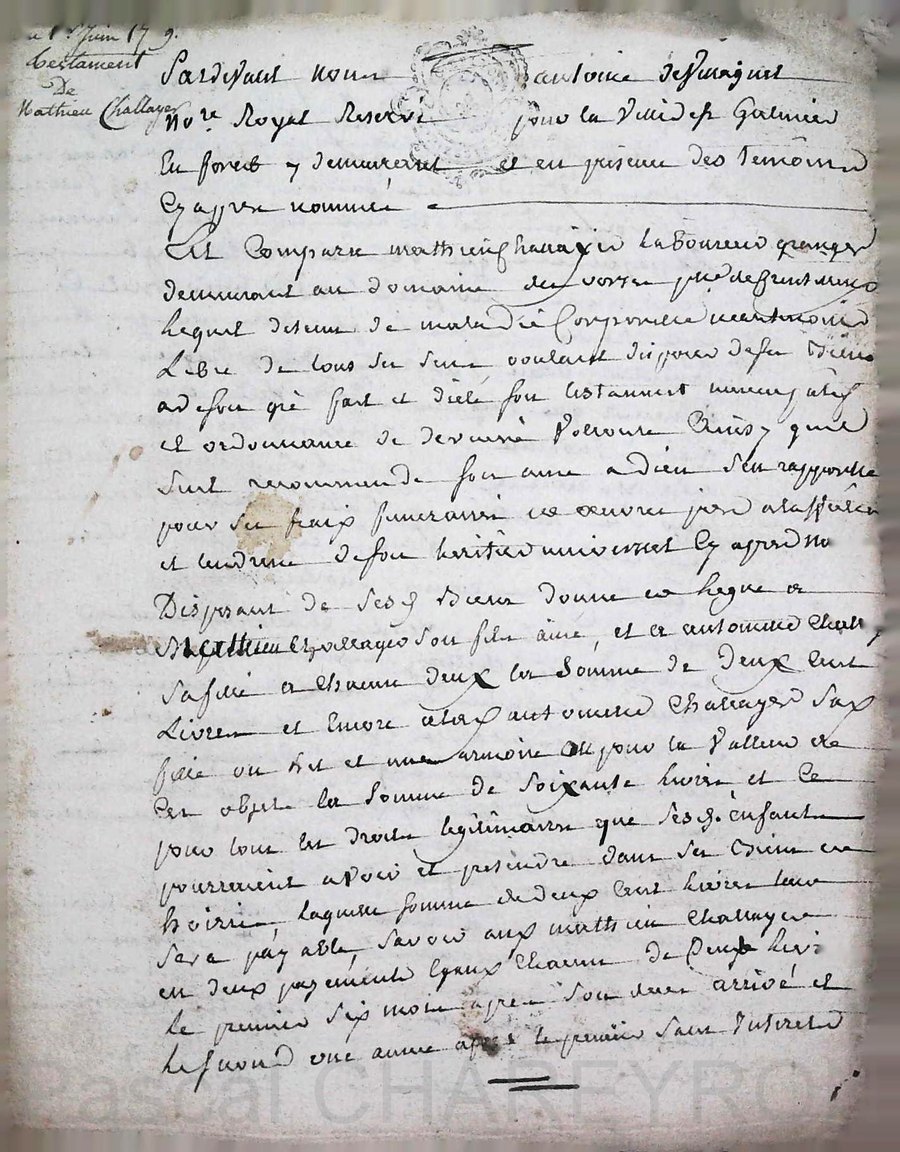 Juin 17 9.
testament
De
Mathieu Challayer
Pardevant nous antoine
No.re Royal Reservé pour la Ville de st Galmier
En forest y demeurant et en presence des temoins
Cy apres nommés
fut Comparu mathieu Challayer laboureur granger
demeurant au domaine de
lequel detenu de maladie Corporelle neantmoins
Libre de tous ses sens voulant disposer de ses Biens
a de son gré fait et dicté son testament nuncupatif
et ordonnance de derniere Volonté Ainsy quil
suit recommande son ame a dieu s'en rapporte
pour ses fraix funeraires et oeuvres pies a la
et de son heritier universel Cy apres no
Disposant de sesd. Biens donne et legue a
Mathieu Challayer son fils ainé, et a antoinette Challayer
sa fille a Chacun deux la Somme de deux Cent
Livres et Encore a lad. antoinette Challayer sa
fille un lit et une armoire ou pour la Valleur de
Ces objets la somme de soixante livres et Ce
pour tous les droits legitimaires que sesd. enfants
pourroient avoir et pretendre dans ses Biens et
hoirie, laquelle somme de deux Cent livres leur
Sera payable, Savoir aux mathieu Challayer
en deux payements Egaux Chacun de Cent livr
le premier six mois apres son deces arrivé et
le second une année apres le premier sans Interets
Pascal CHAREYRO